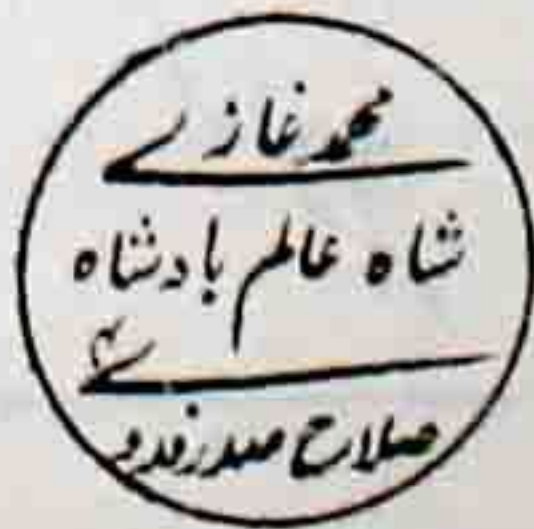 محمد غازے
شاہ عالم بادشاہ
صلاح صدر